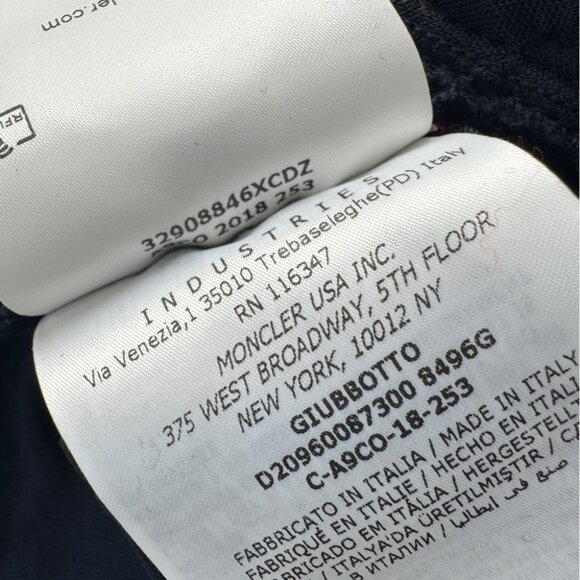 ler.com
RFI
32908846XCDZ
2018 253
INDUSTRIES
Via Venezia,1 35010 Trebaseleghe(PD) Italy
RN 116347
MONCLER USA INC.
375 WEST BROADWAY, 5TH FLOOR
NEW YORK, 10012 NY
GIUBBOTTO
D20960087300 8496G
C-A9CO-18-253
FABBRICATO IN ITALIA / MADE IN ITALY
FABRIQUÉ EN ITALIE / HECHO EN ITALI
FABRICADO EM ITÁLIA / HERGESTELLT
/ ITALYA'DA ÜRETILMIŞTIR / ÇA
В ИТАЛИИ / صنع في ايطاليا